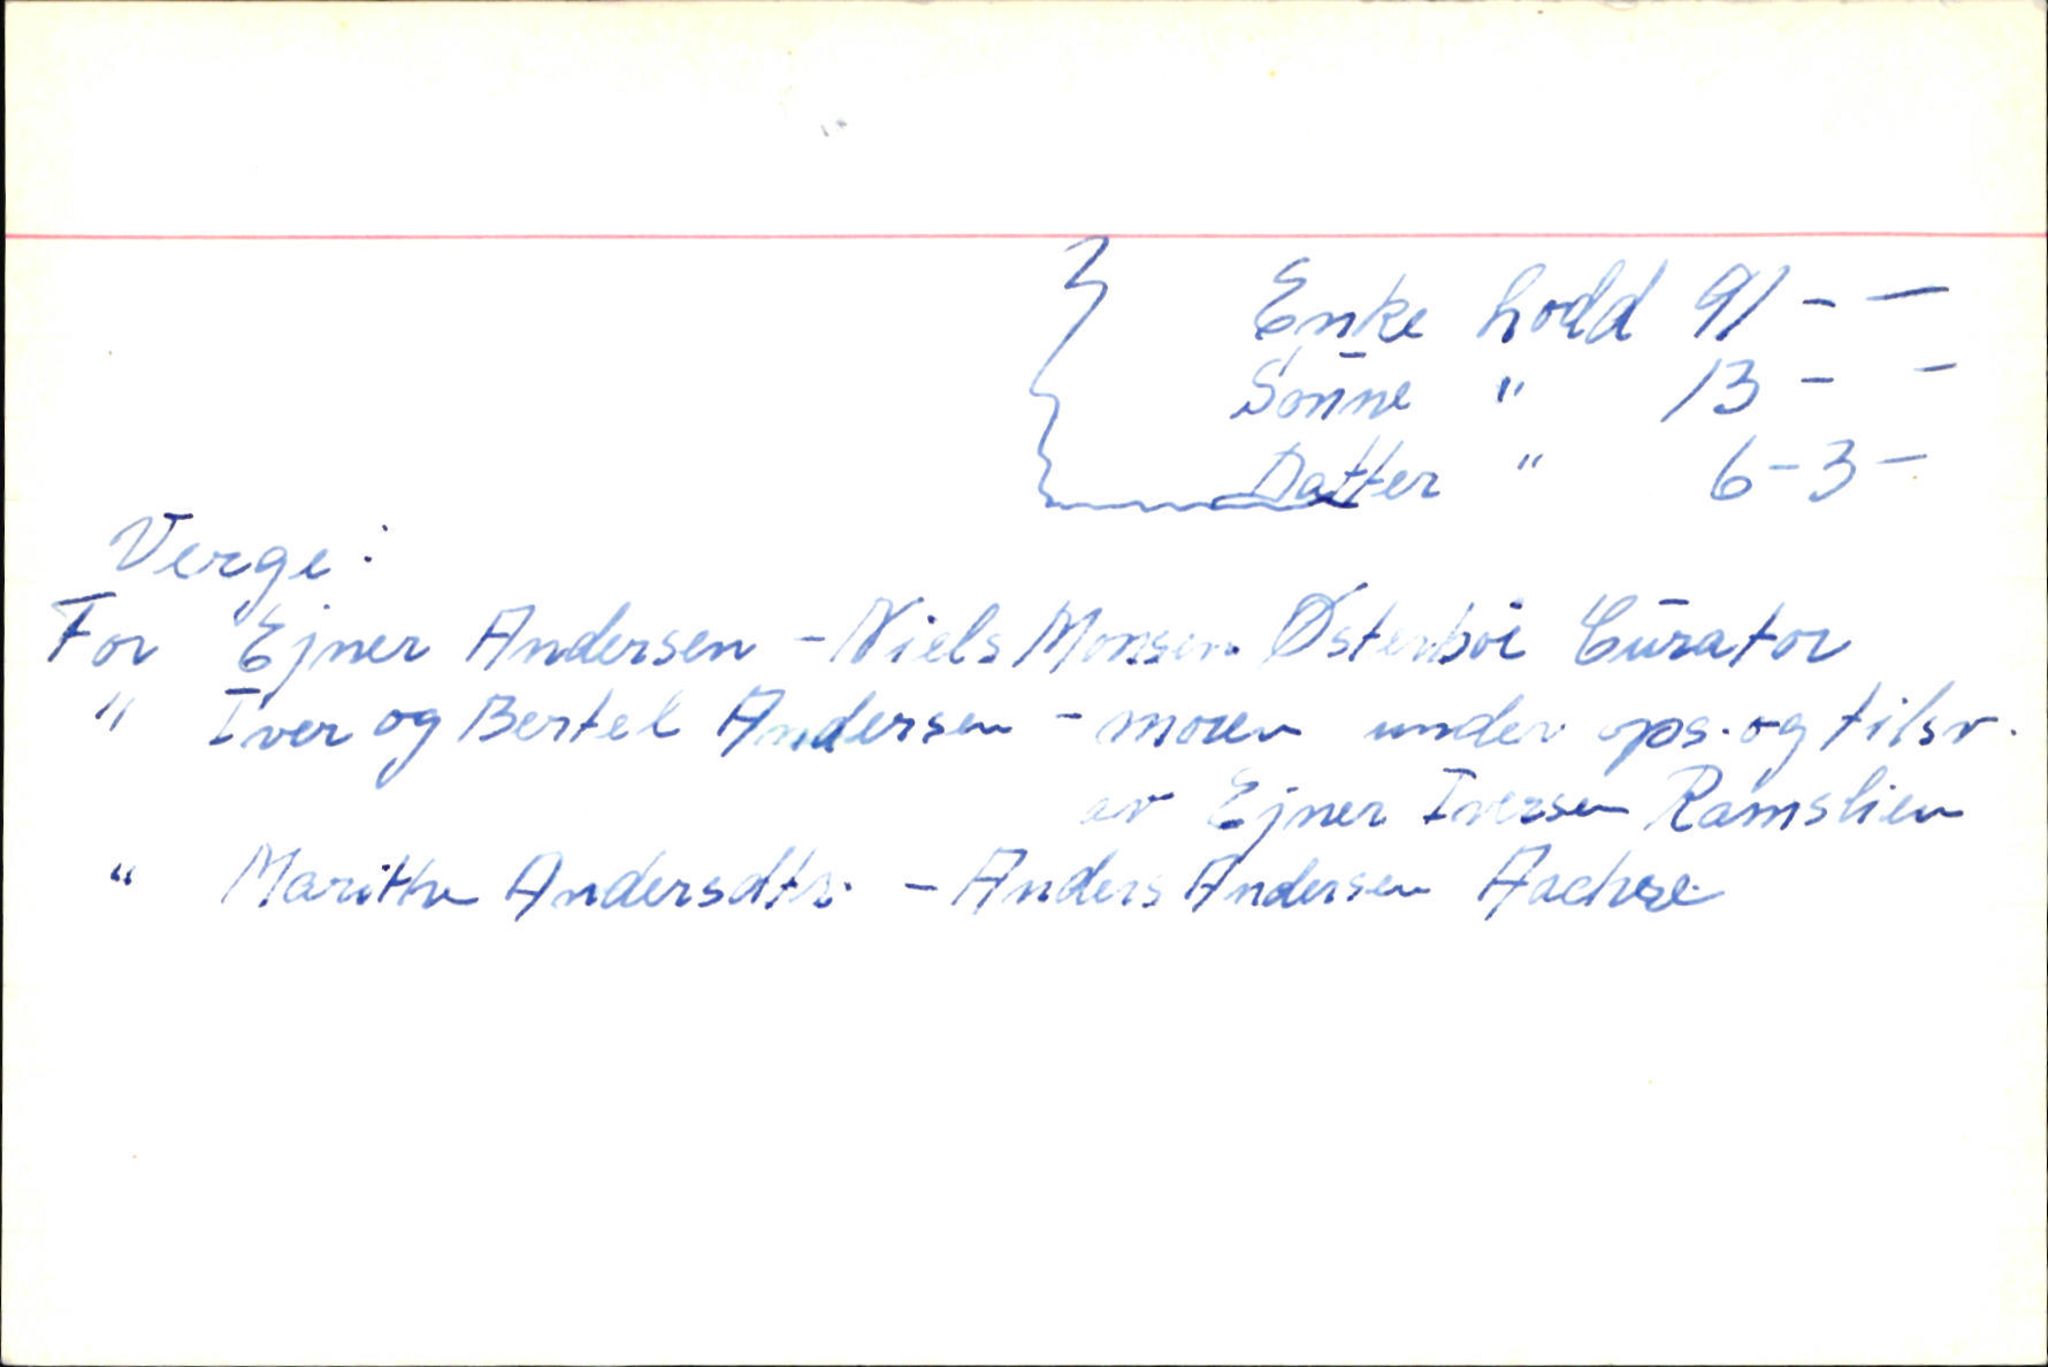 Enke lodd 91 - -
Sønne " 13 - -
Datter " 6 - 3 -
Verge:
For Ejner Andersen - Niels Monsen Østerbøe Curator
" Iver og Bertel Andersen - moren under ops. og tilsv.
av Ejner Iversen Ramslien
" Marithe Andersdtr. - Anders Andersen